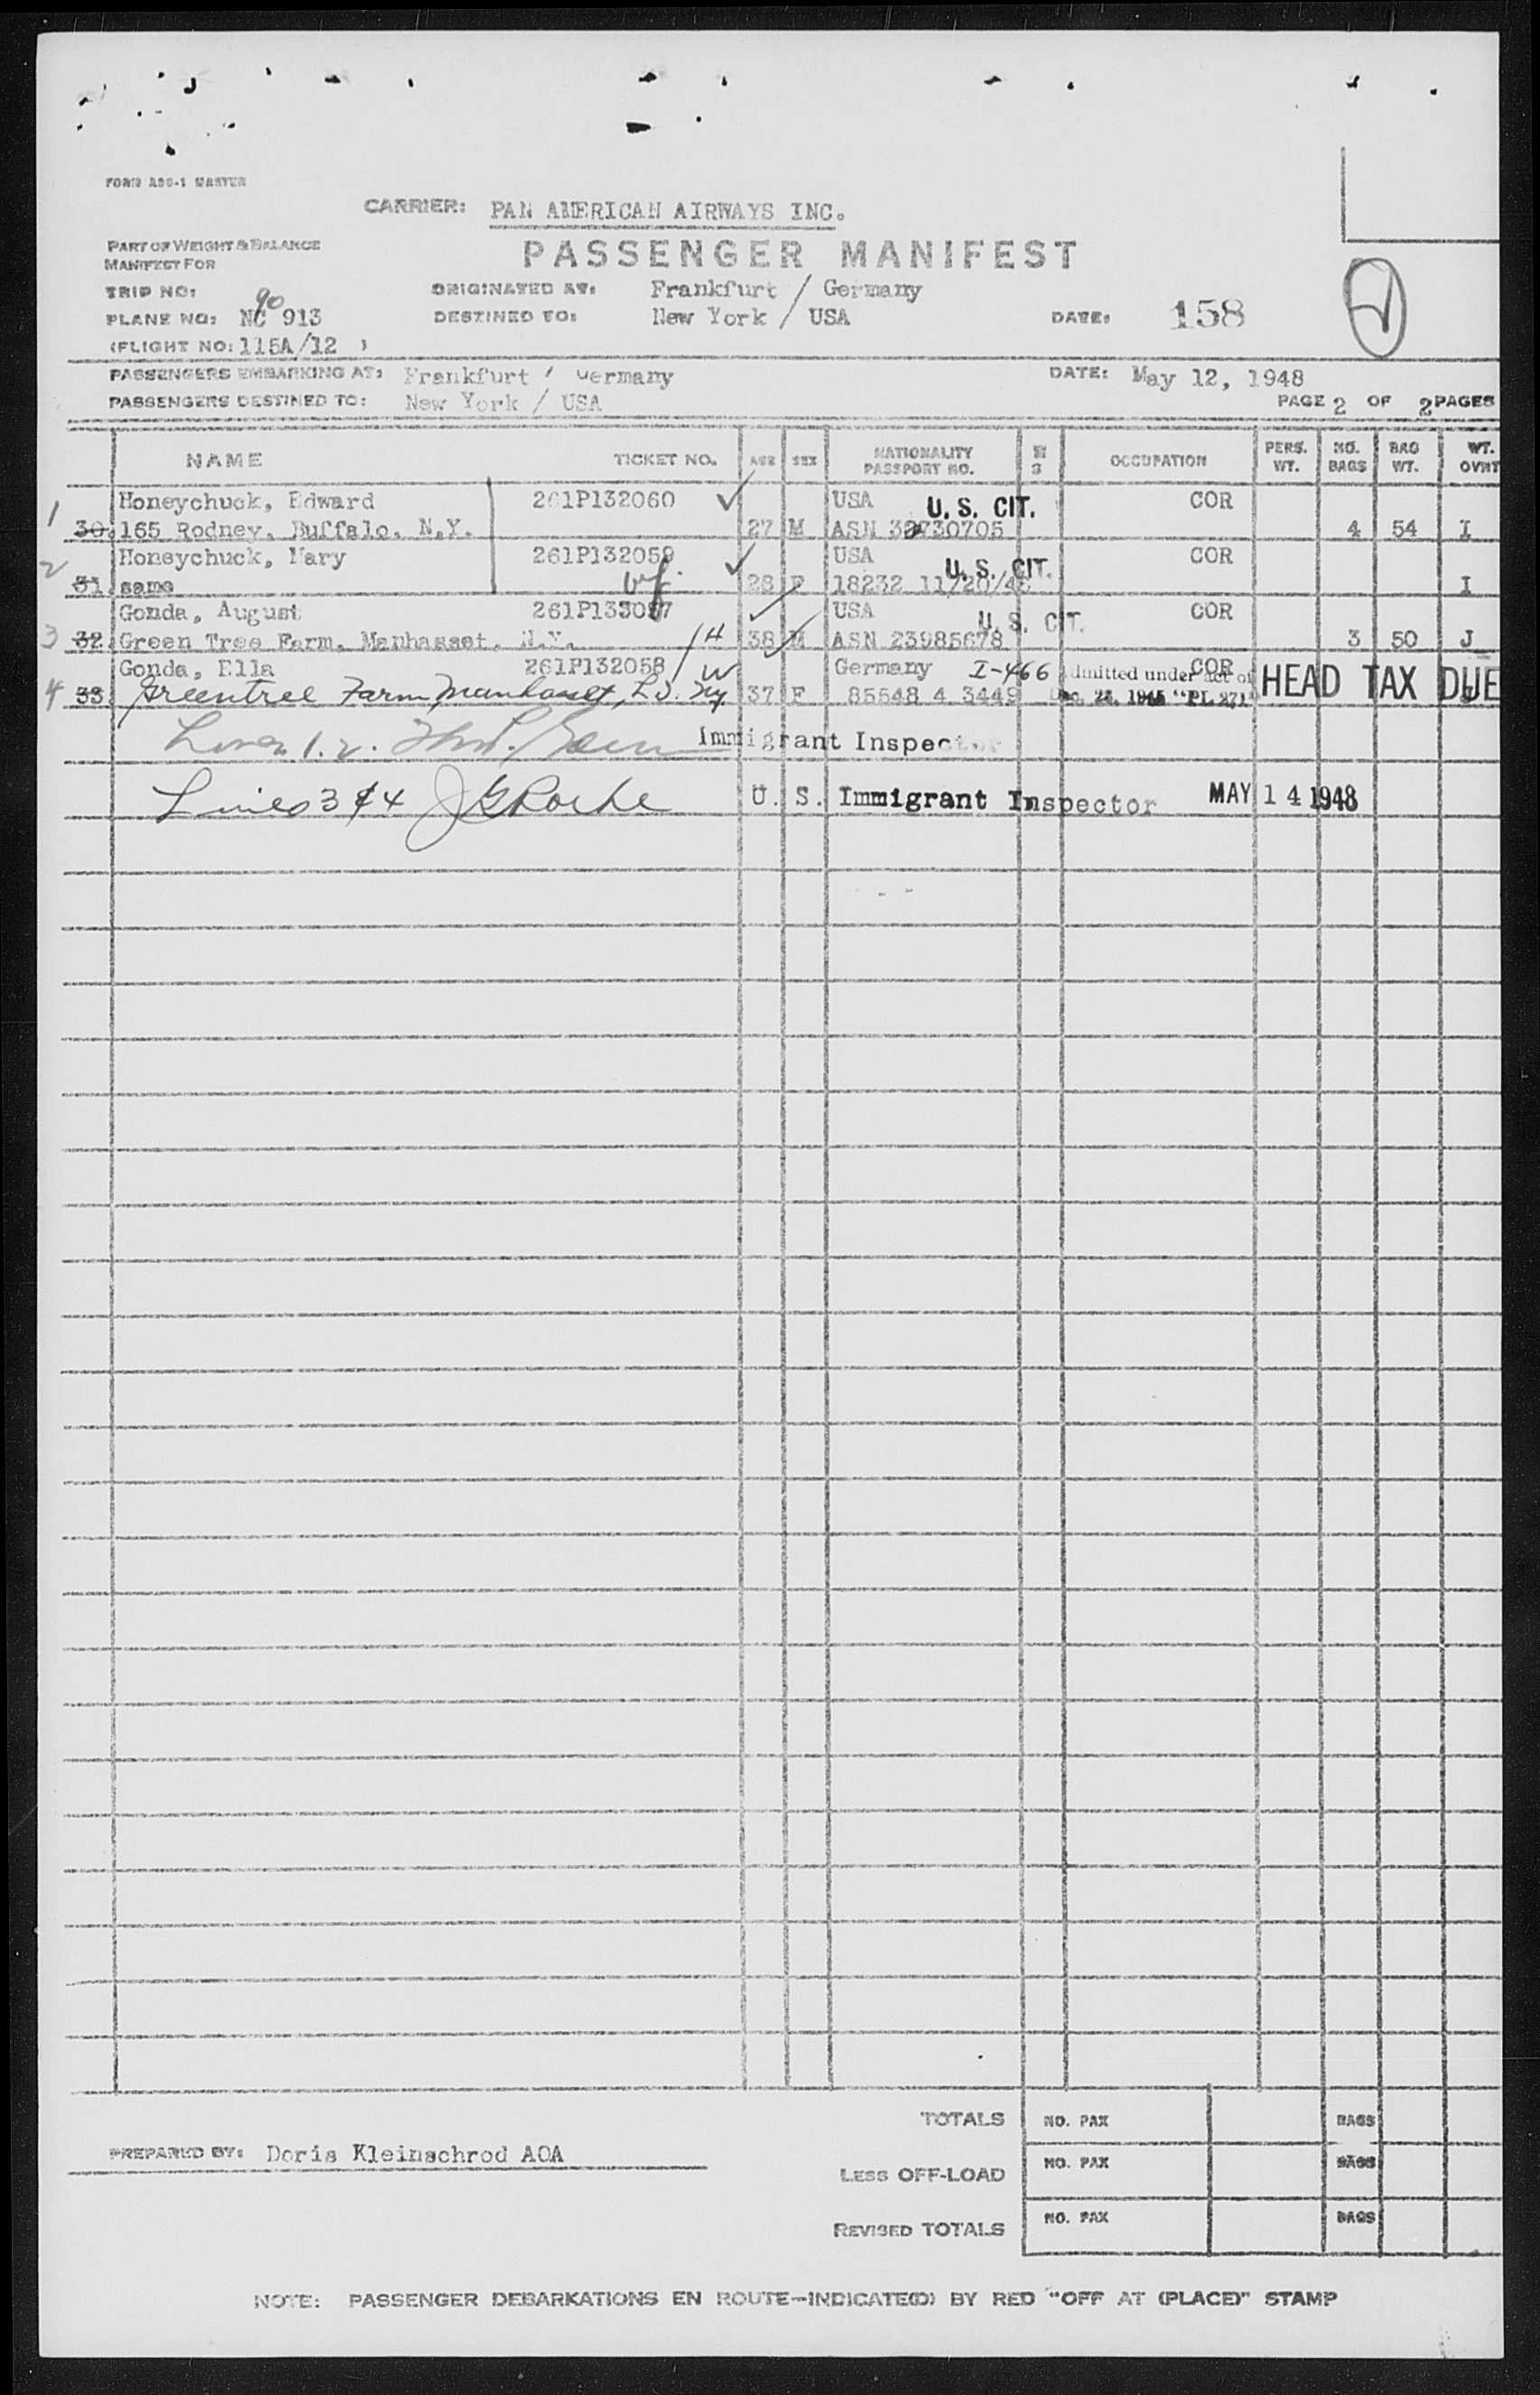 FORM ASO-1 MASTER
CARRIER: PAN AMERICAN AIRWAYS INC.
PART OF WEIGHT & BALANCE
MANIFEST FOR
PASSENGER MANIFEST
TRIP NO: 90
ORIGINATED AT: Frankfurt / Germany
PLANE NO: NC 913
DESTINED TO: New York / USA
DATE: 158
(FLIGHT NO: 115A/12 )
PASSENGERS EMBARKING AT: Frankfurt / Germany
DATE: May 12, 1948
PASSENGERS DESTINED TO: New York / USA
PAGE 2 OF 2 PAGES
NAME TICKET NO. AGE SEX NATIONALITY PASSPORT NO. OCCUPATION PERS. WT. NO. BAGS BAG WT. WT. OVWT
1 Honeychuck, Edward 261P132060 USA U. S. CIT. COR
30. 165 Rodney, Buffalo, N.Y. 27 M ASN 4 54 I
2 Honeychuck, Mary 261P132059 USA U. S. CIT. COR
31. same 28 F 18232 11/20/46 I
Gonda, August USA U. S. CIT. COR
3 32. Green Tree Farm, Manhasset, N.Y. H 38 M ASN 23985678 3 50 J
Gonda, Ella 261P132058 W Germany I-466 Admitted under act of COR HEAD TAX DUE
4 33. Greentree Farm, Manhasset, L.I. NY 37 F 85648 4 3449 Dec. 28, 1945 "PL 271" J
Lines 1. 2. Immigrant Inspector
Lines 3 & 4 J G Roche U. S. Immigrant Inspector MAY 14 1948
TOTALS NO. PAX BAGS
PREPARED BY: Doris Kleinschrod AOA
LESS OFF-LOAD NO. PAX BAGS
REVISED TOTALS NO. PAX BAGS
NOTE: PASSENGER DEBARKATIONS EN ROUTE—INDICATE(D) BY RED "OFF AT (PLACE)" STAMP